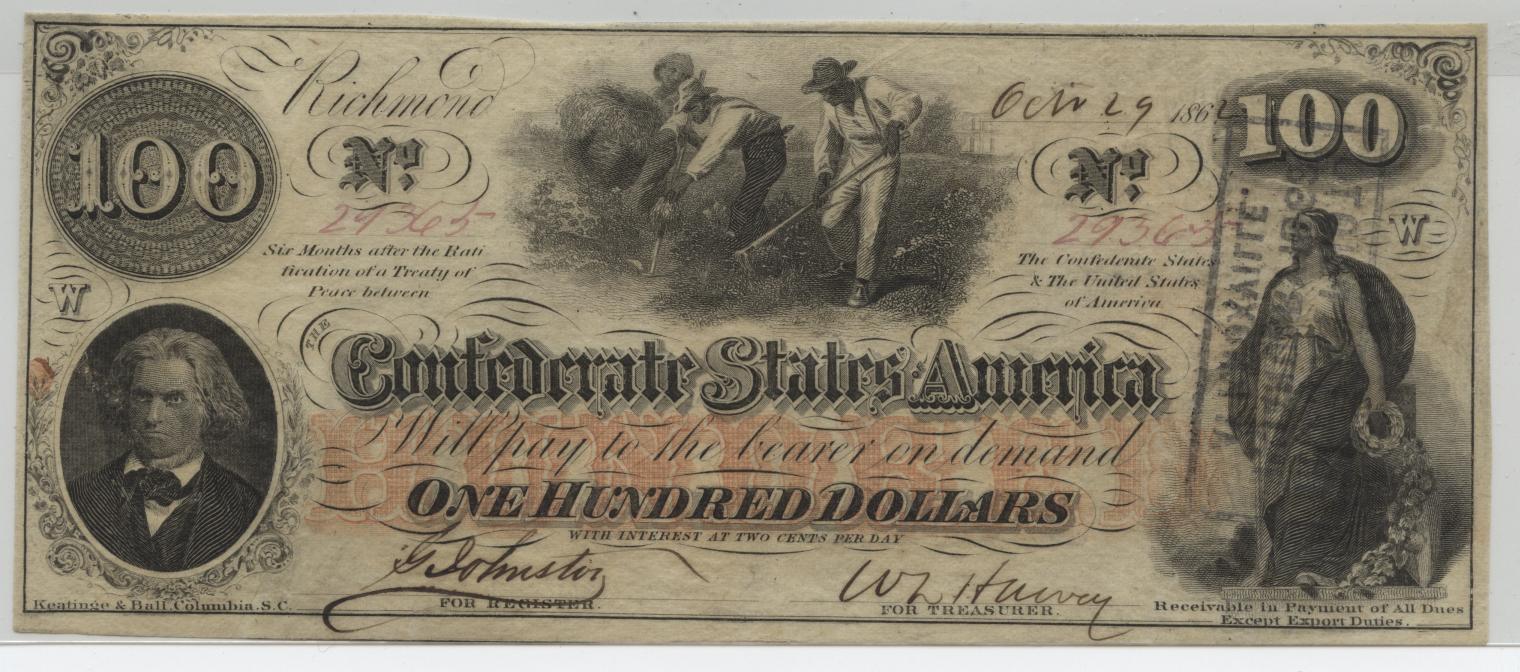 100
Richmond
Octr 29 1862
100
No.
No.
29365
29365
Six Months after the Rati
fication of a Treaty of
Peace between
The Confederate States
& The United States
of America
W
W
THE
Confederate States America
Will pay to the bearer on demand
HUNDRED
ONE HUNDRED DOLLARS
WITH INTEREST AT TWO CENTS PER DAY
G Johnston
W L Harvey
FOR REGISTER.
FOR TREASURER.
Keatinge & Ball, Columbia, S.C.
Receivable in Payment of All Dues
Except Export Duties.